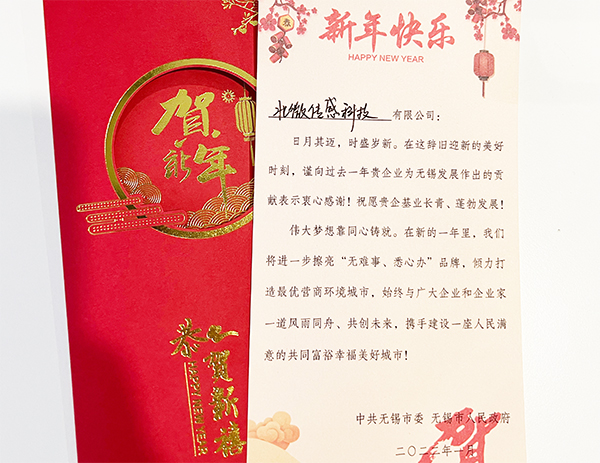 賀
新年
恭賀新禧
HAPPY NEW YEAR
春
新年快乐
HAPPY NEW YEAR
北微传感科技 有限公司：
日月其迈，时盛岁新。在这辞旧迎新的美好
时刻，谨向过去一年贵企业为无锡发展作出的贡
献表示衷心感谢！祝愿贵企基业长青、蓬勃发展！
伟大梦想靠同心铸就。在新的一年里，我们
将进一步擦亮“无难事、悉心办”品牌，倾力打
造最优营商环境城市，始终与广大企业和企业家
一道风雨同舟、共创未来，携手建设一座人民满
意的共同富裕幸福美好城市！
中共无锡市委 无锡市人民政府
二〇二二年一月